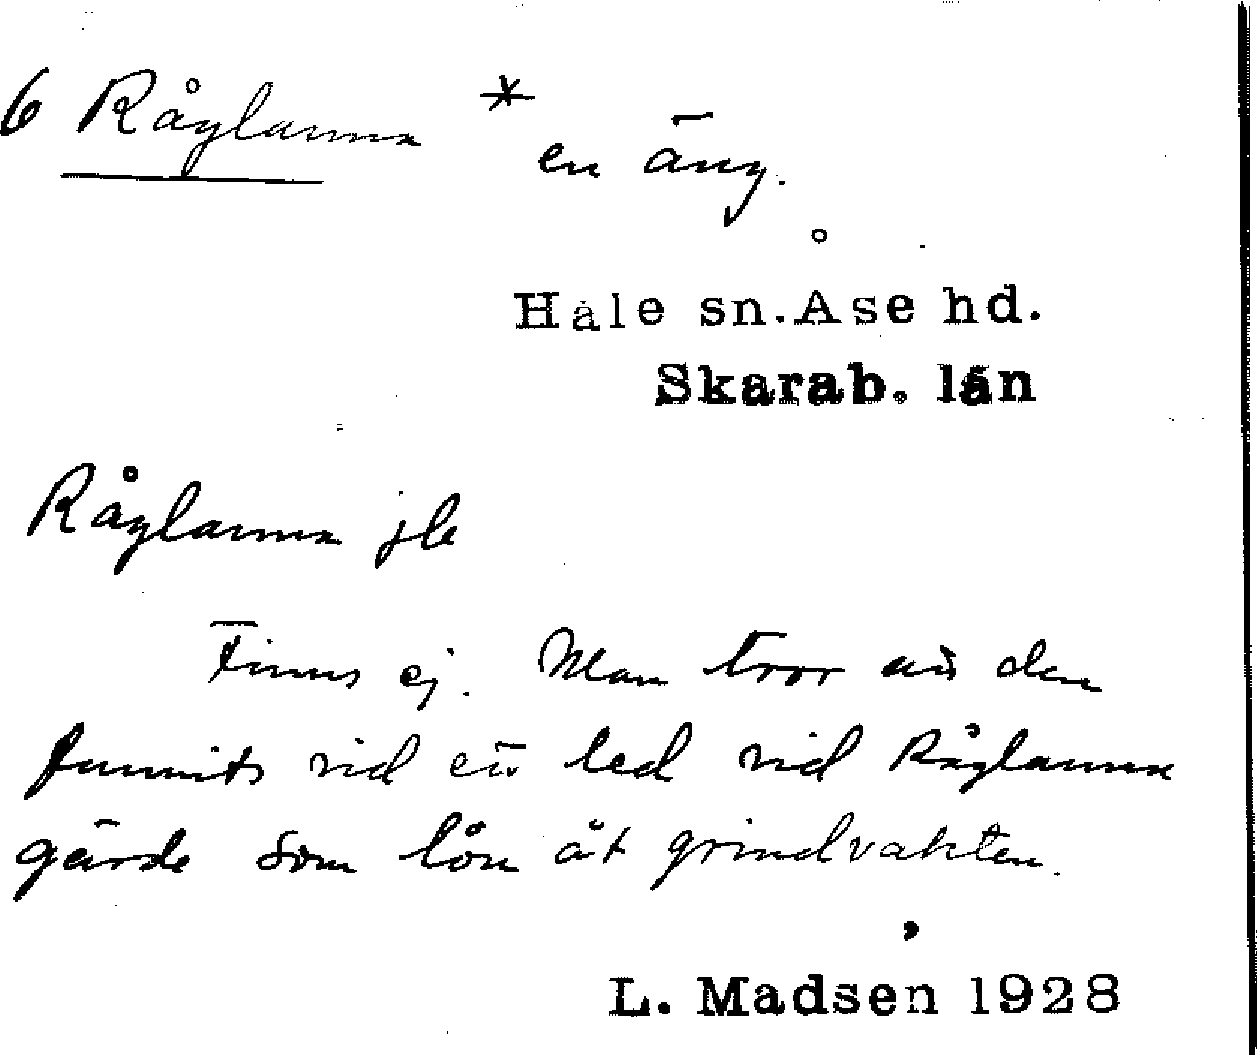 6 Råglanna * en äng.
Håle sn. Åse hd.
Skarab. län
Råglanna jle
Finns ej. Man tror att den
funnits vid ett led vid Råglanna
gärde som lön åt grindvakten.
L. Madsen 1928